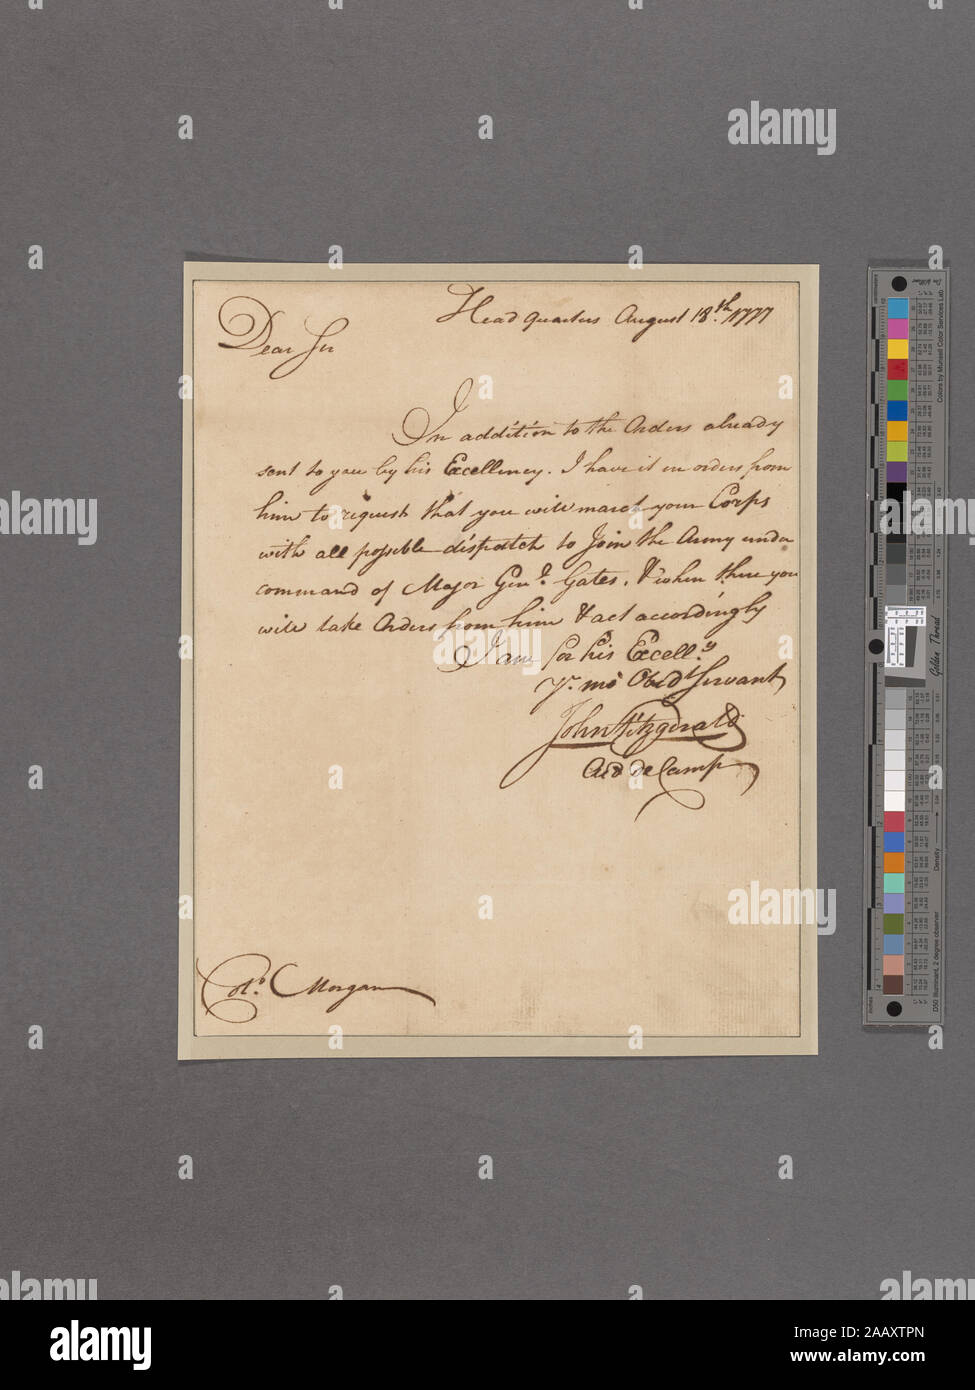 Head Quarters August 18.th 1777
Dear Sir
In addition to the Orders already
sent to you by his Excellency. I have it in orders from
him to request that you will march your Corps
with all possible dispatch to Join the Army under
command of Major Gen.l Gates, & when there you
will take Orders from him & act accordingly
I am for his Excell.y
Yr. mo Obedt Servant
John Fitzgerald
Aid de Camp
Colo. Morgan
Colors by Munsell Color Services Lab
Golden Thread
D50 Illuminant, 2 degree observer
Density
inches
centimeters
alamy
a
alamy
Image ID: 2AAXTPN
www.alamy.com